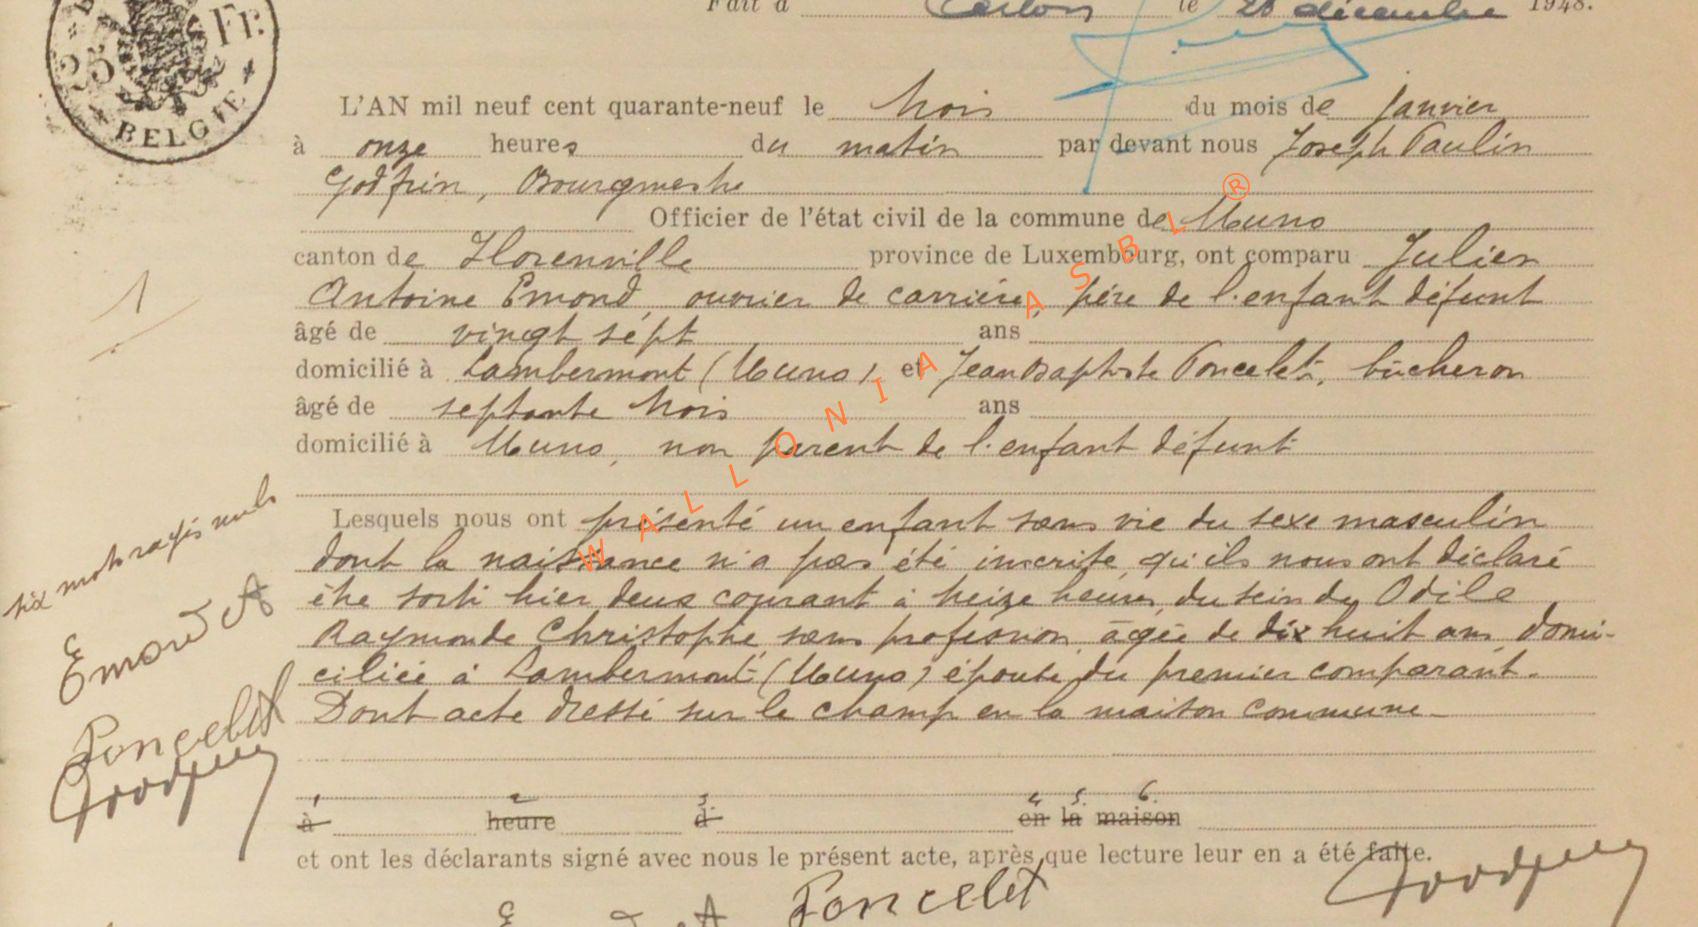 Fait à Arlon le 28 décembre 1948.
25 Fr.
BELGIE
L'AN mil neuf cent quarante-neuf le trois du mois de janvier
à onze heures du matin par devant nous Joseph Paulin
Godfrin, Bourgmestre
Officier de l'état civil de la commune de Muno
canton de Florenville province de Luxembourg, ont comparu Julien
Antoine Emond, ouvrier de carrière, père de l'enfant défunt
âgé de vingt sept ans
domicilié à Lambermont (Muno) et Jean Baptiste Poncelet, bûcheron
âgé de septante trois ans
domicilié à Muno, non parent de l'enfant défunt
Lesquels nous ont présenté un enfant sans vie du sexe masculin
dont la naissance n'a pas été inscrite, qu'ils nous ont déclaré
être sorti hier deux courant à treize heures, du sein de Odile
Raymonde Christophe, sans profession, âgée de dix huit ans, domi-
ciliée à Lambermont (Muno) épouse du premier comparant.
Dont acte dressé sur le champ en la maison commune.
1 2 3. 4 5. 6.
à heure d en la maison
et ont les déclarants signé avec nous le présent acte, après que lecture leur en a été faite.
E d A Poncelet
1
six mots rayés nuls
Emond A
Poncelet
WALLONIA ASBL ®